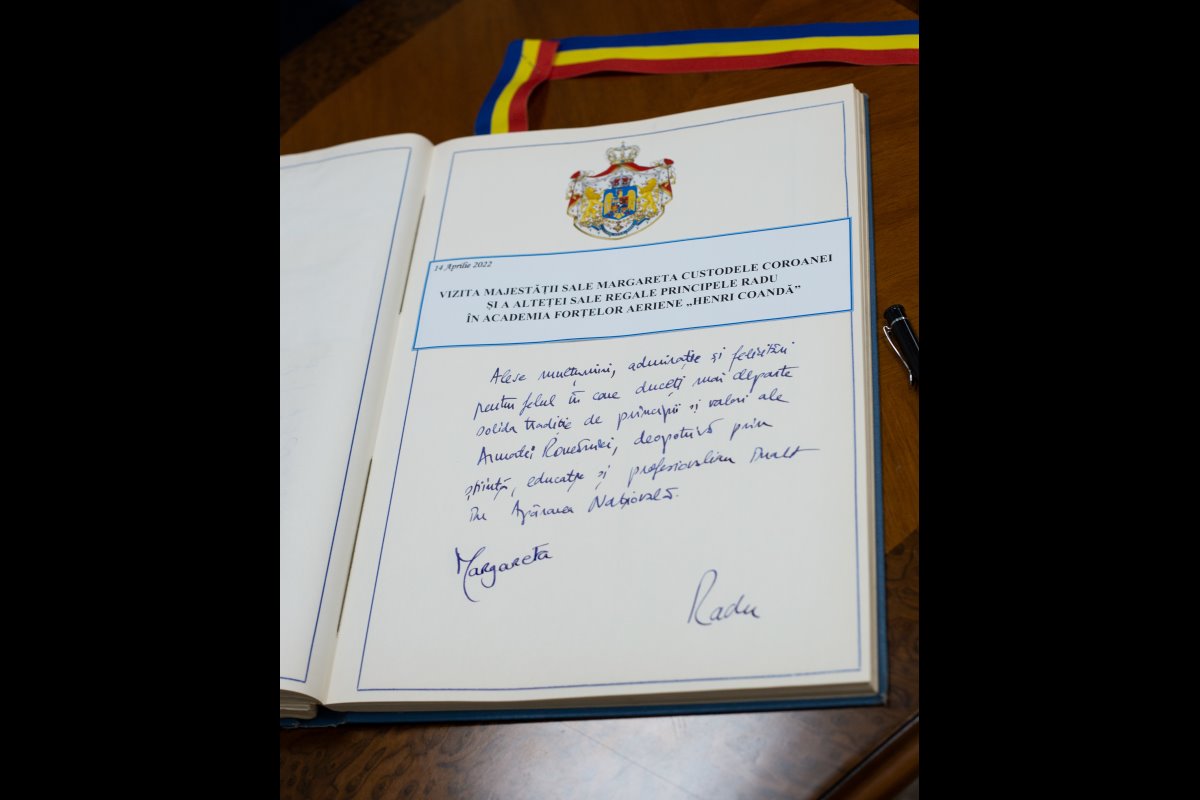 14 Aprilie 2022
VIZITA MAJESTĂȚII SALE MARGARETA CUSTODELE COROANEI
ȘI A ALTEȚEI SALE REGALE PRINCIPELE RADU
ÎN ACADEMIA FORȚELOR AERIENE „HENRI COANDĂ”
Alese mulțumiri, admirație și felicitări
pentru felul în care duceți mai departe
solida tradiție de principii și valori ale
Armatei României, deopotrivă prin
știință, educație și profesionalism înalt
în Apărarea Națională.
Margareta
Radu